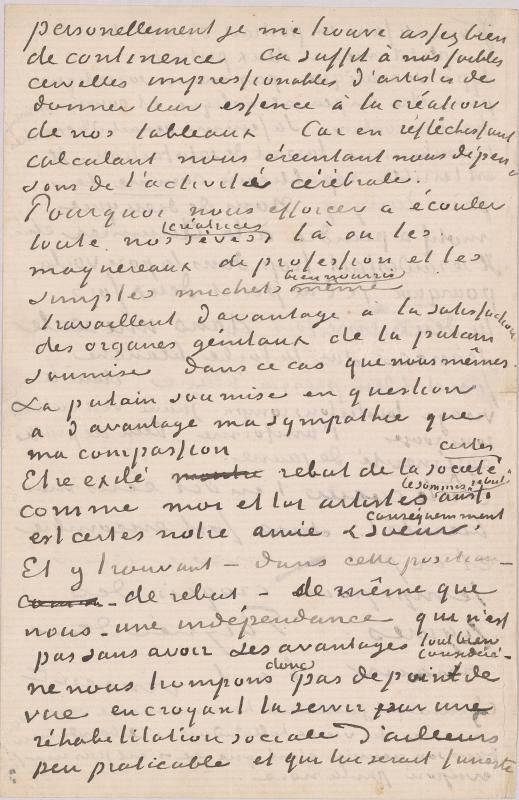 personellement je me trouve assez bien
de continence Ca suffit à nos faibles
cervelles impressionables d'artistes de
donner leur essence à la création
de nos tableaux Car en réfléchissant
calculant nous éreintant nous dépen
sons de l'activité cérébrale.
Pourquoi nous efforcer a écouler
créatrices
toute nos sèves là où les
maquereaux de profession et les
bien nourris
simples michets même
travaillent davantage à la satisfaction
des organes genitaux de la putain
soumise dans ce cas que nous mêmes.
La putain soumise en question
a davantage ma sympathie que
ma compassion
certes
Etre exilé rebut de la société
le sommes rebut
comme moi et toi artistes
conséquemment
est certes notre amie & soeur.
Et y trouvant – dans cette position –
de rebut – de même que
nous – une indépendance qui n'est
tout bien
pas sans avoir ses avantages
considéré –
donc
ne nous trompons pas de point de
vue en croyant la servir par une
réhabilitation sociale d'ailleurs
peu praticable et qui lui serait funeste